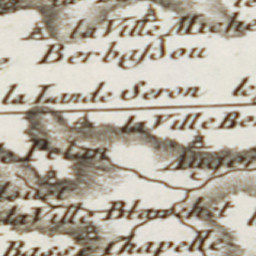 la Ville Miche
Berbassou
la Lande Seron
la Ville Be
Pelan
la Ville Blanchet
Basse Chapelle